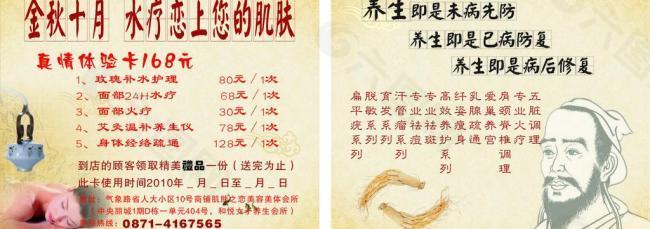 金秋十月 水疗恋上您的肌肤
真情体验卡168元
1、玫瑰补水护理 80元/1次
2、面部24H水疗 68元/1次
3、面部火疗 30元/1次
4、艾灸温补养生仪 78元/1次
5、身体经络疏通 128元/1次
到店的顾客领取精美禮品一份（送完为止）
此卡使用时间2010年_月_日至_月_日
地址：气象路省人大小区10号商铺肌肤之恋美容美体会所
（中央丽城1期D栋一单元404号，和悦女子养生会所）
热线：0871-4167565
养生即是未病先防
养生即是已病防复
养生即是病后修复
五脏调理
肩颈脊椎调理
乳腺疏通
纤姿瘦身
高效养护系列
专业祛斑
专业祛痘
汗管瘤系列
脱敏系列
扁平疣系列